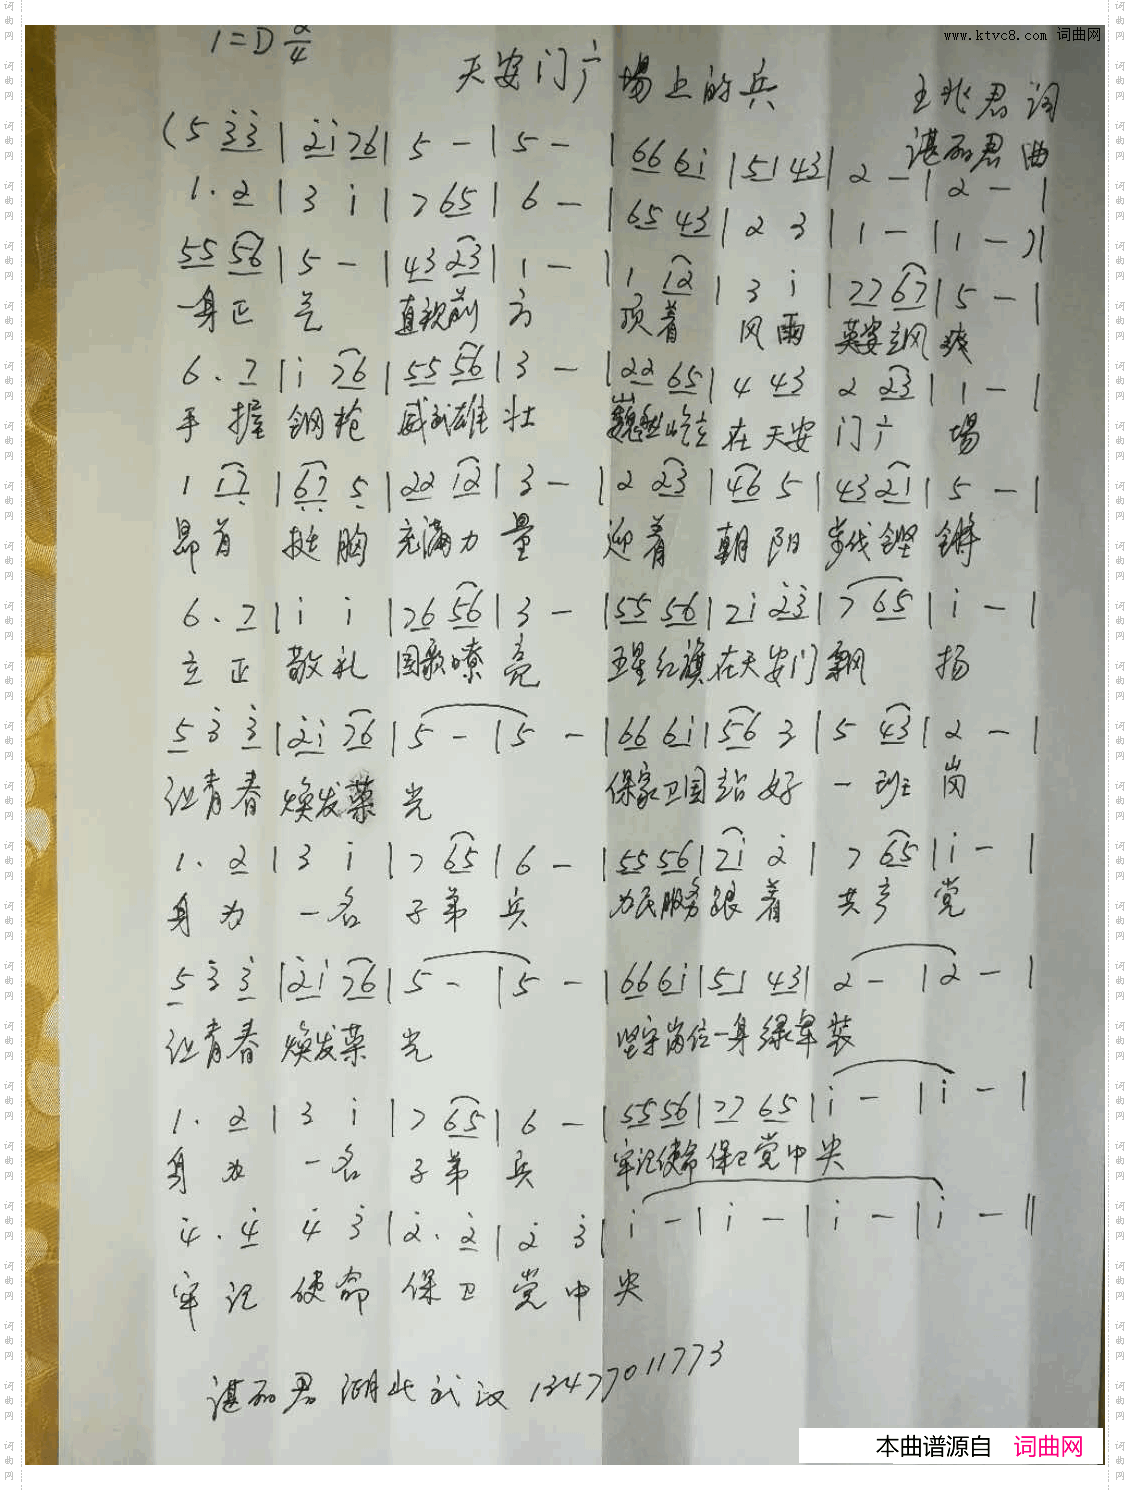 www.ktvc8.com 词曲网
1=D 2/4
天安门广場上的兵
王兆君词
谌丽君曲
(5 3̇3̇ | 2̇i 76 | 5 - | 5 - | 66 6i | 51 43 | 2 - | 2 - |
1. 2 | 3 i | 7 65 | 6 - | 65 43 | 2 3 | 1 - | 1 - )|
55 56 | 5 - | 43 23 | 1 - | 1 12 | 3 i | 77 67 | 5 - |
一身正 气 直视前 方 顶着 风雨 英姿飒 爽
6. 7 | i 76 | 55 56 | 3 - | 22 65 | 4 43 2 23 | 1 - |
手握 钢枪 威武雄 壮 巍然屹立 在天安 门广 場
1 17 | 67 5 | 22 12 | 3 - | 2 23 | 46 5 | 43 21 | 5 - |
昂首 挺胸 充满力 量 迎着 朝阳 步伐铿 锵
6. 7 | i i | 76 56 | 3 - | 55 56 | 7i 2̇3̇ | 7 65 | i - |
立正 敬礼 国歌嘹 亮 五星红旗在天安门飘 扬
5 3̇ 3̇ | 2̇i 76 | 5 - | 5 - | 66 6i | 56 3 | 5 43 | 2 - |
让青春 焕发荣 光 保家卫国站好 一班 岗
1. 2 | 3 i | 7 65 | 6 - | 55 56 | 7i 2̇ | 7 65 | i - |
身为 一名 子弟 兵 为民服务跟着 共产 党
5 3̇ 3̇ | 2̇i 76 | 5 - | 5 - | 66 6i | 51 43 | 2 - | 2 - |
让青春 焕发荣 光 坚守岗位一身绿军装
1. 2 | 3 i | 7 65 | 6 - | 55 56 | 77 65 | i - | i - |
身为 一名 子弟 兵 牢记使命保卫党中央
4̇. 4̇ 4̇ 3̇ | 2̇. 2̇ | 2̇ 3̇ | i - | i - | i - | i - ‖
牢记 使命 保卫 党中 央
谌丽君 湖北武汉 13477011773
本曲谱源自 词曲网